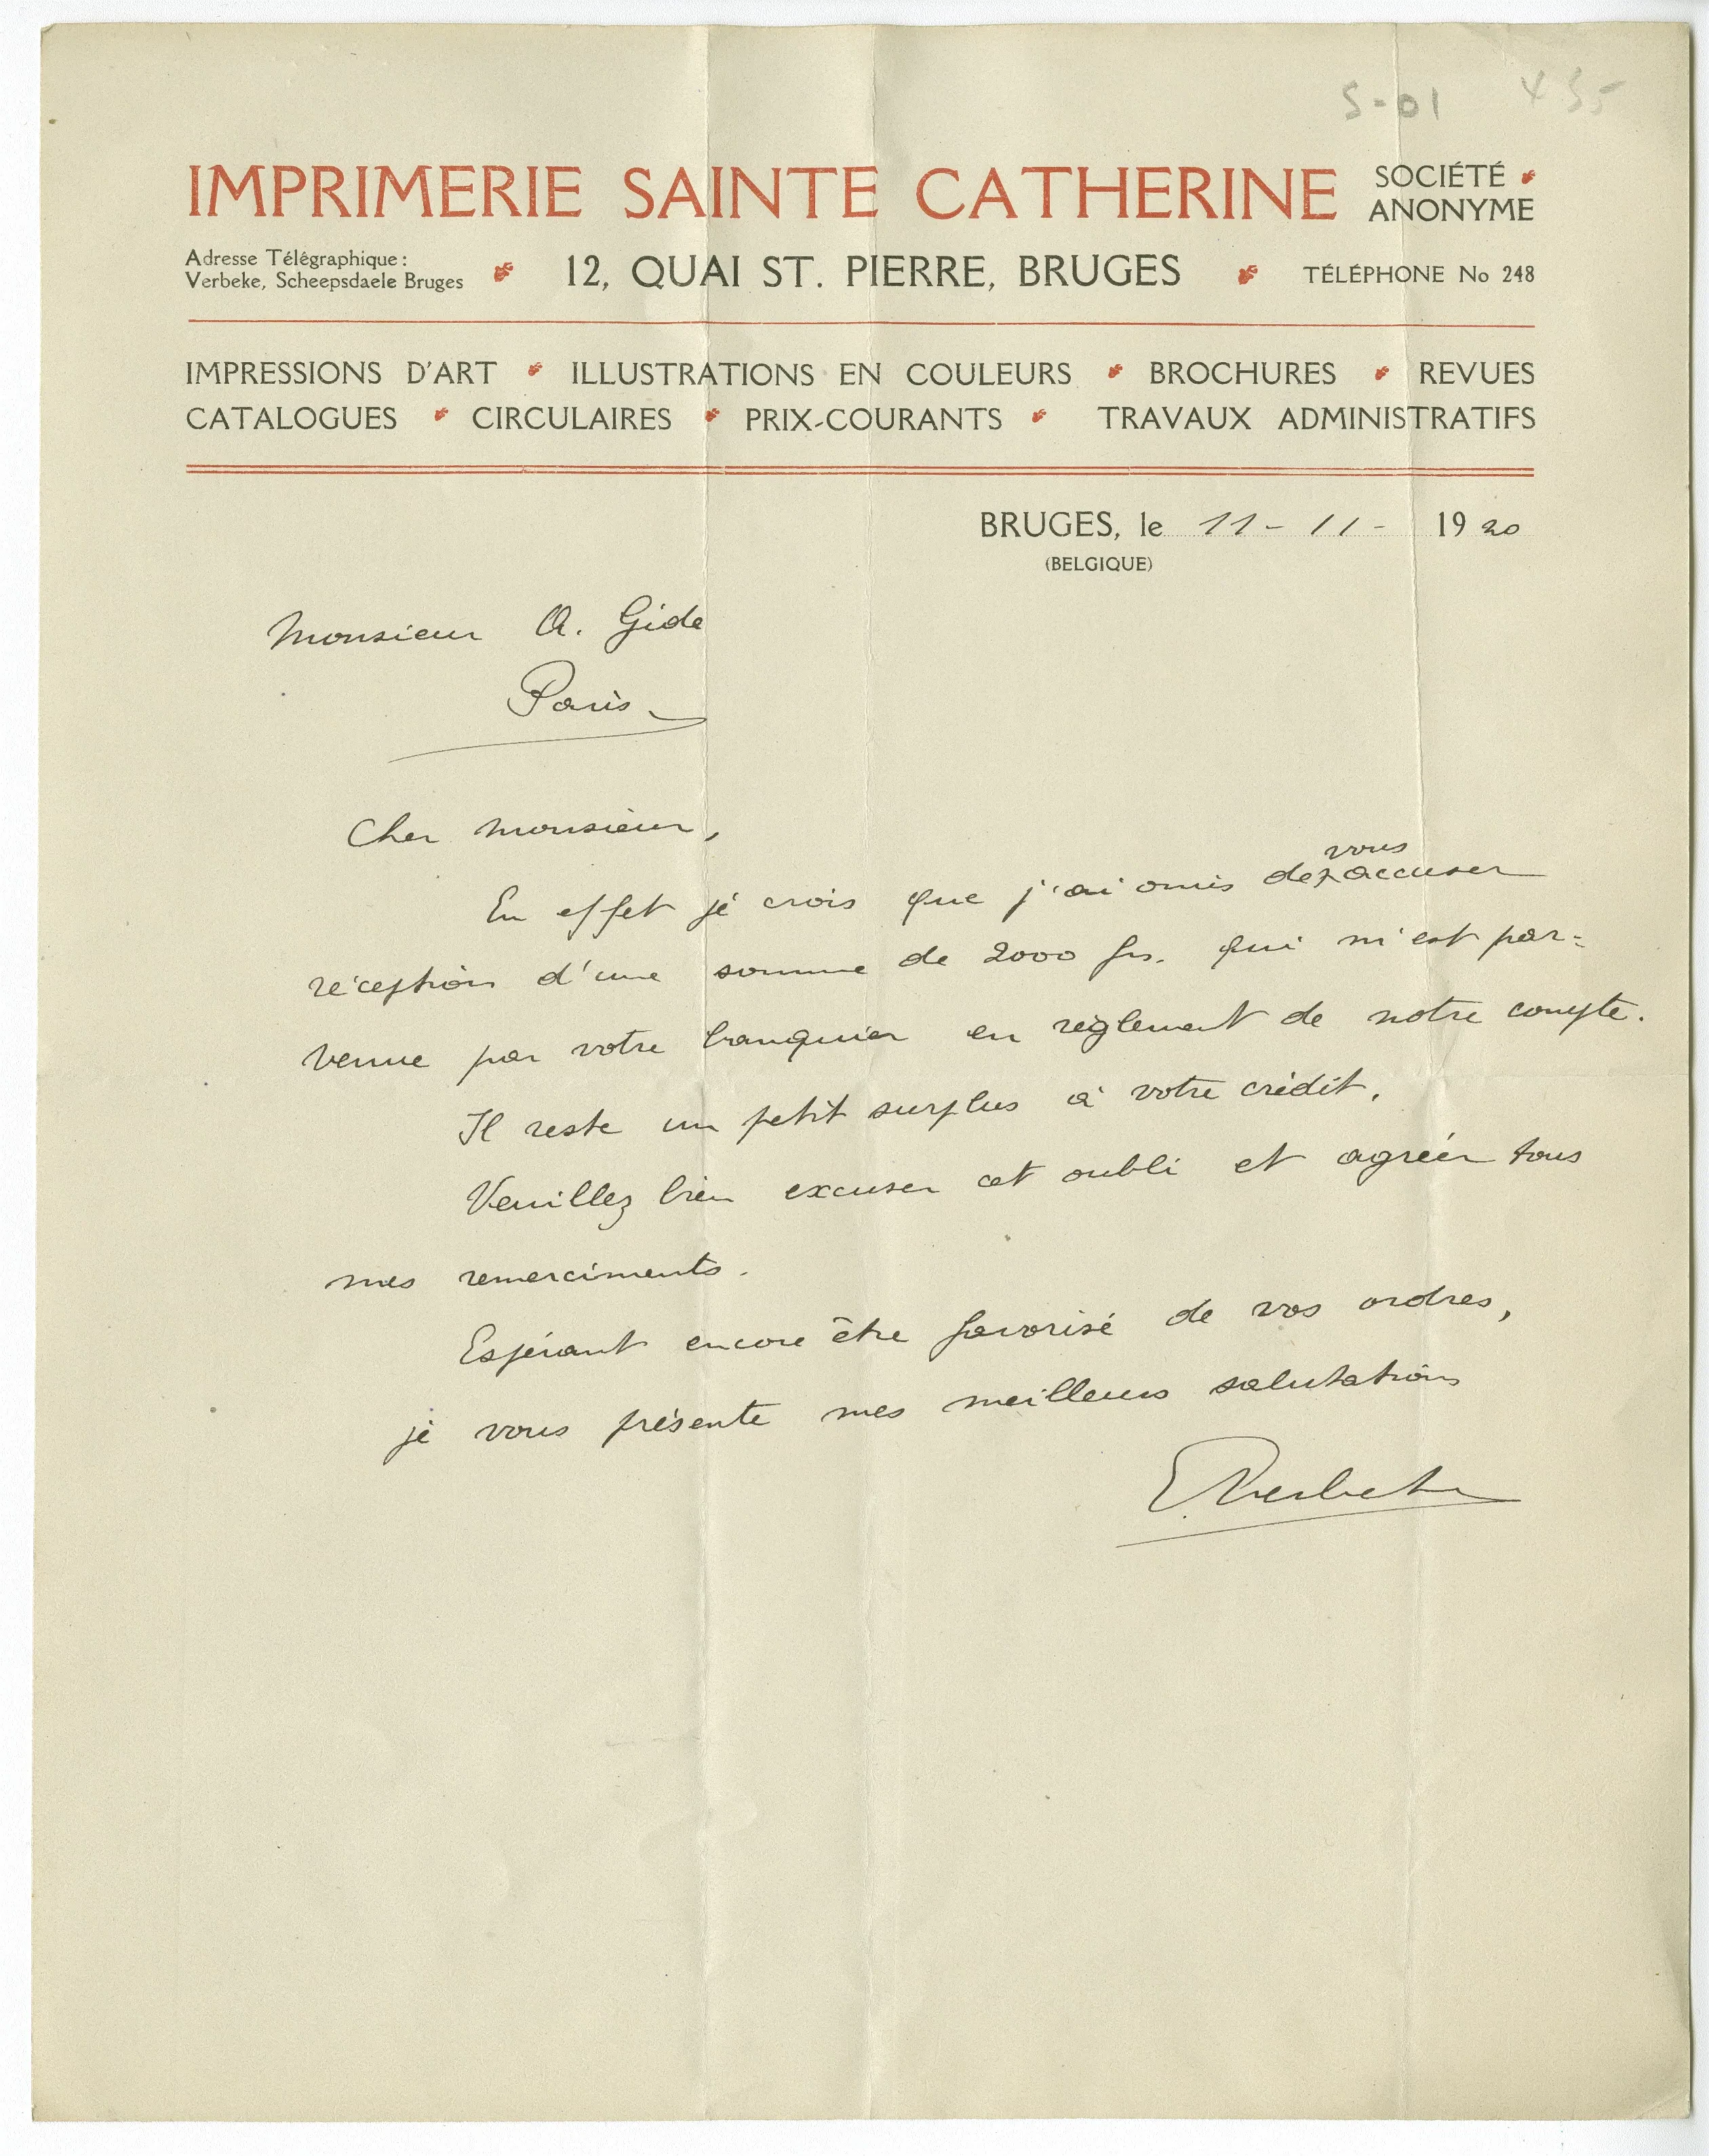 S-01 435
IMPRIMERIE SAINTE CATHERINE SOCIÉTÉ ANONYME
Adresse Télégraphique :
Verbeke, Scheepsdaele Bruges
12, QUAI ST. PIERRE, BRUGES
TÉLÉPHONE No 248
IMPRESSIONS D'ART ILLUSTRATIONS EN COULEURS BROCHURES REVUES
CATALOGUES CIRCULAIRES PRIX-COURANTS TRAVAUX ADMINISTRATIFS
BRUGES, le 11-11- 1920
(BELGIQUE)
Monsieur A. Gide
Paris
Cher monsieur,
En effet je crois que j'ai omis de vous accuser
réception d'une somme de 2000 frs. qui m'est par=
venue par votre banquier en règlement de notre compte.
Il reste un petit surplus à votre crédit.
Veuillez bien excuser cet oubli et agréer tous
mes remerciments.
Espérant encore être favorisé de vos ordres,
je vous présente mes meilleurs salutations
E Verbeke